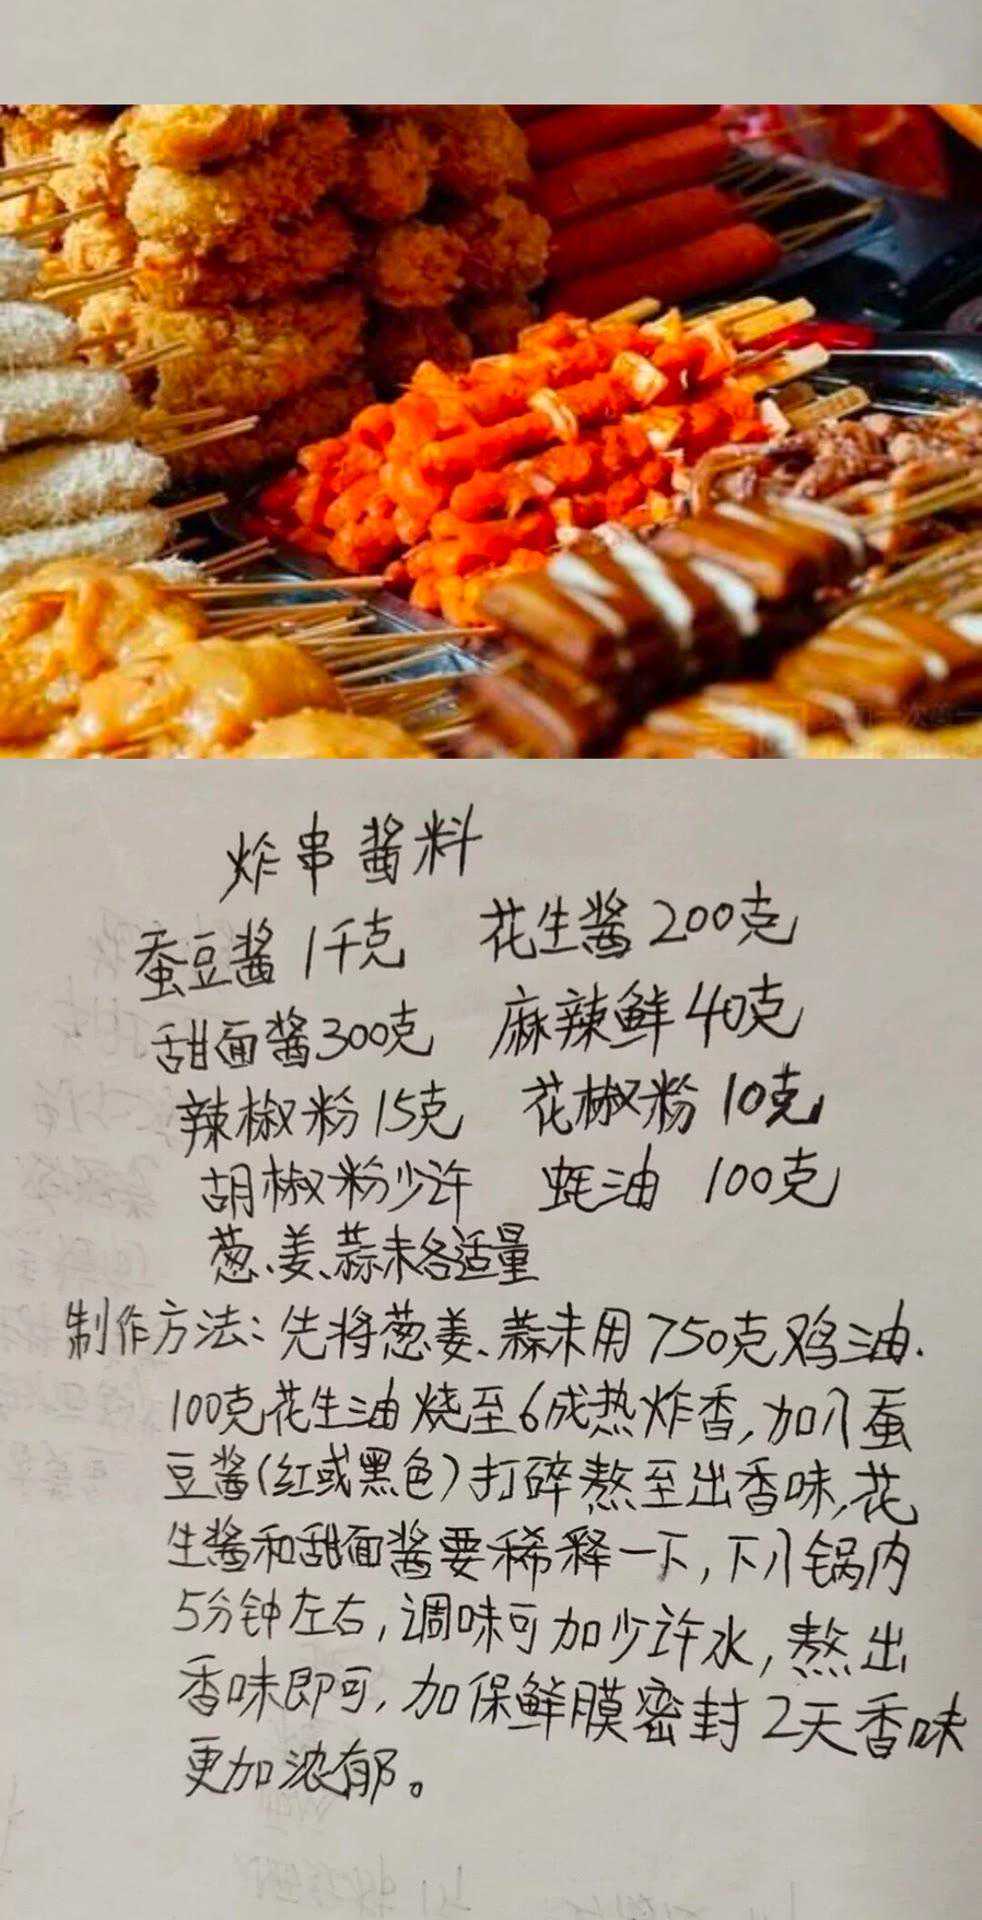 炸串酱料
蚕豆酱1千克 花生酱200克
甜面酱300克 麻辣鲜40克
辣椒粉15克 花椒粉10克
胡椒粉少许 蚝油 100克
葱、姜、蒜末各适量
制作方法:先将葱姜、蒜末用750克鸡油.
100克花生油烧至6成热炸香,加入蚕
豆酱(红或黑色)打碎熬至出香味,花
生酱和甜面酱要稀释一下,下入锅内
5分钟左右,调味可加少许水,熬出
香味即可,加保鲜膜密封2天香味
更加浓郁。